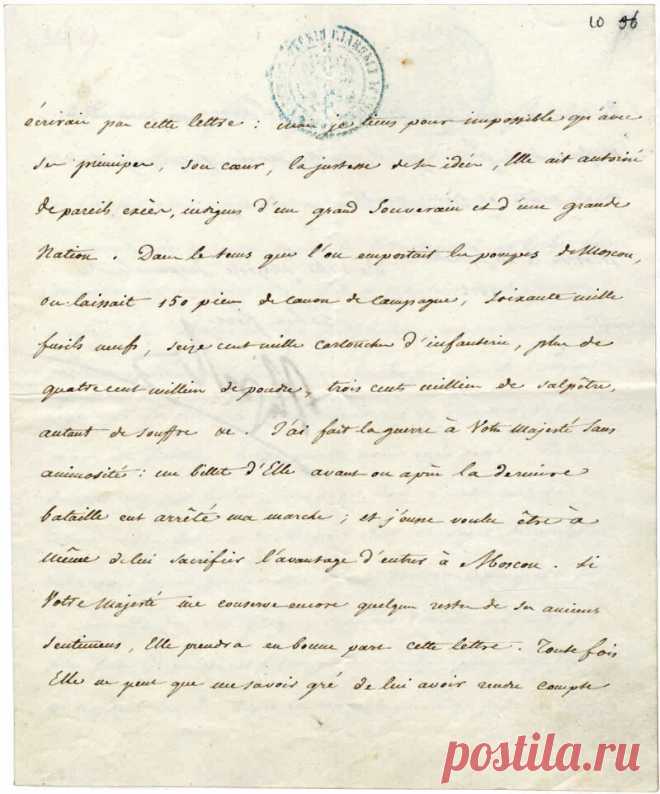 10 96
écrivait par cette lettre : mais je tiens pour impossible qu'avec
ses principes, son cœur, la justesse de ses idées, Elle ait autorisé
de pareils excès, indignes d'un grand Souverain et d'une grande
Nation. Dans le tems que l'on emportait les pompes de Moscou,
on laissait 150 pièces de canon de campagne, soixante mille
fusils neufs, seize cent mille cartouches d'infanterie, plus de
quatre cent milliers de poudre, trois cent milliers de salpêtre,
autant de souffre &c. J'ai fait la guerre à Votre Majesté sans
animosité : un billet d'Elle avant ou après la dernière
bataille eut arrêté ma marche ; et j'eusse voulu être à
même de lui sacrifier l'avantage d'entrer à Moscou. Si
Votre Majesté me conserve encore quelques restes de ses anciens
sentimens, Elle prendra en bonne part cette lettre. Toutefois
Elle ne peut que me savoir gré de lui avoir rendu compte
postila.ru